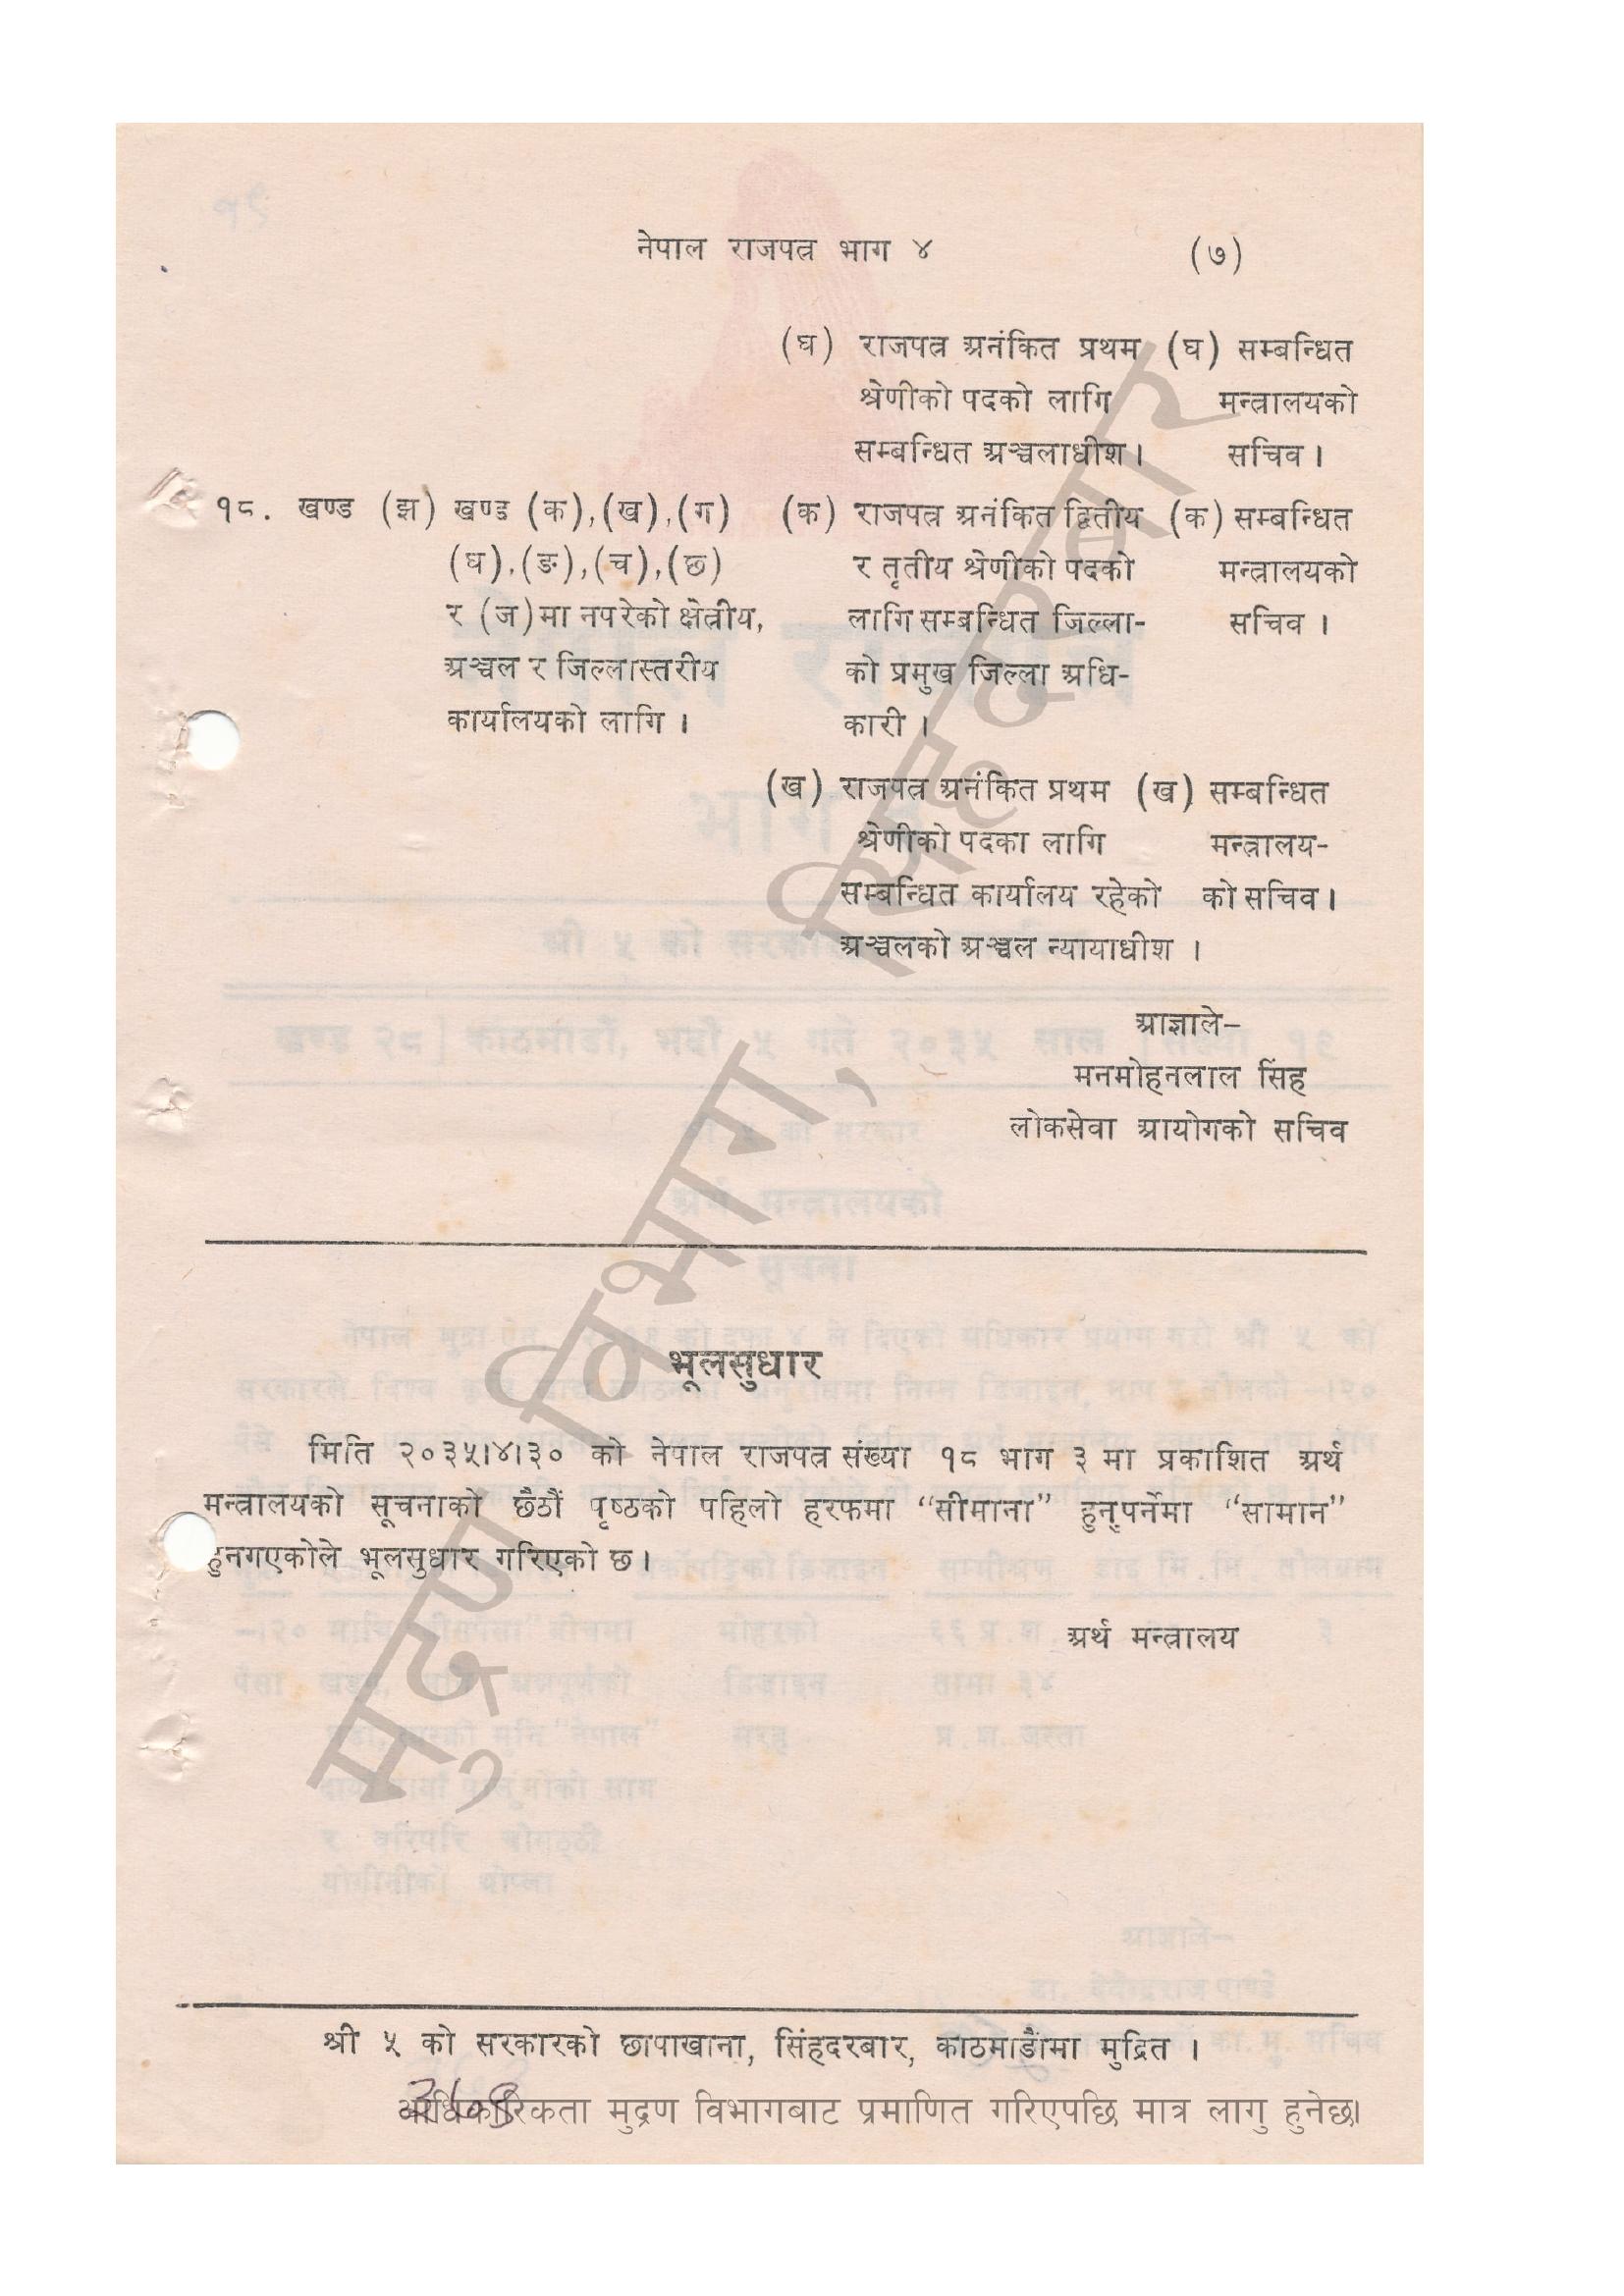 नेपाल राजपत्र भाग ४ (७)
(घ) राजपत्र अनंकित प्रथम (घ) सम्बन्धित
श्रेणीको पदको लागि मन्त्रालयको
सम्बन्धित अञ्चलाधीश। सचिव।
१८. खण्ड (झ) खण्ड (क),(ख),(ग) (क) राजपत्र अनंकित द्वितीय (क) सम्बन्धित
(घ),(ङ),(च),(छ) र तृतीय श्रेणीको पदको मन्त्रालयको
र (ज)मा नपरेको क्षेत्रीय, लागि सम्बन्धित जिल्ला- सचिव ।
अञ्चल र जिल्लास्तरीय को प्रमुख जिल्ला अधि-
कार्यालयको लागि । कारी ।
(ख) राजपत्र अनंकित प्रथम (ख) सम्बन्धित
श्रेणीको पदका लागि मन्त्रालय-
सम्बन्धित कार्यालय रहेको को सचिव।
अञ्चलको अञ्चल न्यायाधीश ।
आज्ञाले–
मनमोहनलाल सिंह
लोकसेवा आयोगको सचिव
भूलसुधार
मिति २०३५।४।३० को नेपाल राजपत्र संख्या १८ भाग ३ मा प्रकाशित अर्थ
मन्त्रालयको सूचनाको छैठौं पृष्ठको पहिलो हरफमा “सीमाना” हुनुपर्नेमा “सामान”
हुनगएकोले भूलसुधार गरिएको छ।
अर्थ मन्त्रालय
श्री ५ को सरकारको छापाखाना, सिंहदरबार, काठमाडौंमा मुद्रित ।
आधिकारिकता मुद्रण विभागबाट प्रमाणित गरिएपछि मात्र लागु हुनेछ।
मुद्रण विभाग, सिंहदरबार